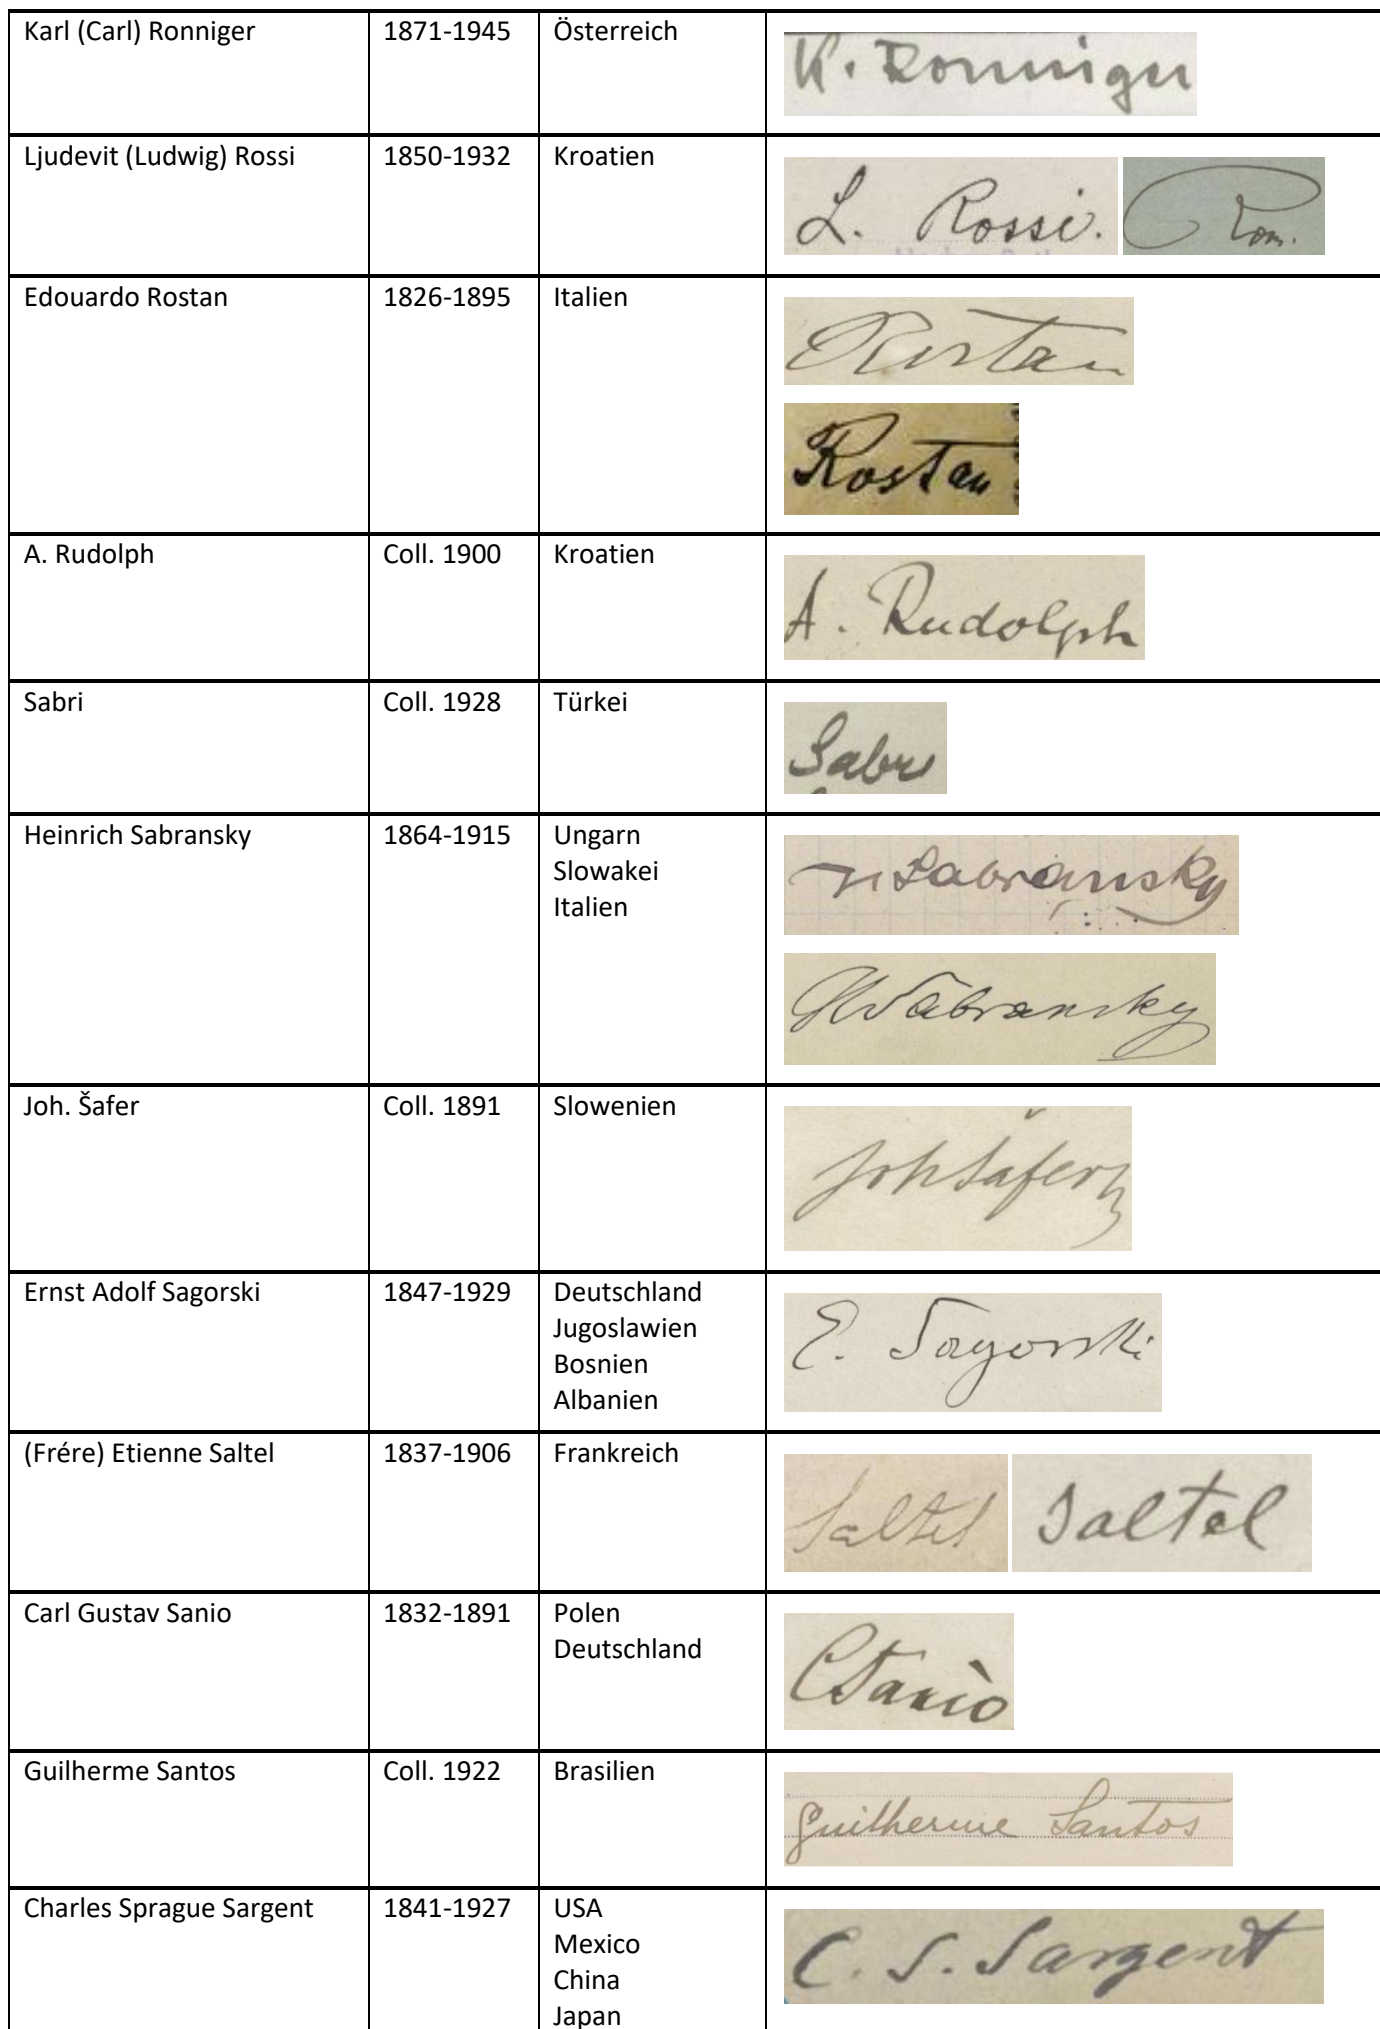 Karl (Carl) Ronniger 1871-1945 Österreich K. Ronniger
Ljudevit (Ludwig) Rossi 1850-1932 Kroatien L. Rossi. Rossi.
Edouardo Rostan 1826-1895 Italien Rostan
Rostan
A. Rudolph Coll. 1900 Kroatien A. Rudolph
Sabri Coll. 1928 Türkei Sabri
Heinrich Sabransky 1864-1915 Ungarn HSabransky
Slowakei
Italien
HSabransky
Joh. Šafer Coll. 1891 Slowenien Joh Šafer
Ernst Adolf Sagorski 1847-1929 Deutschland E. Sagorski
Jugoslawien
Bosnien
Albanien
(Frére) Etienne Saltel 1837-1906 Frankreich Saltel Saltel
Carl Gustav Sanio 1832-1891 Polen CSanio
Deutschland
Guilherme Santos Coll. 1922 Brasilien Guilherme Santos
Charles Sprague Sargent 1841-1927 USA C. S. Sargent
Mexico
China
Japan